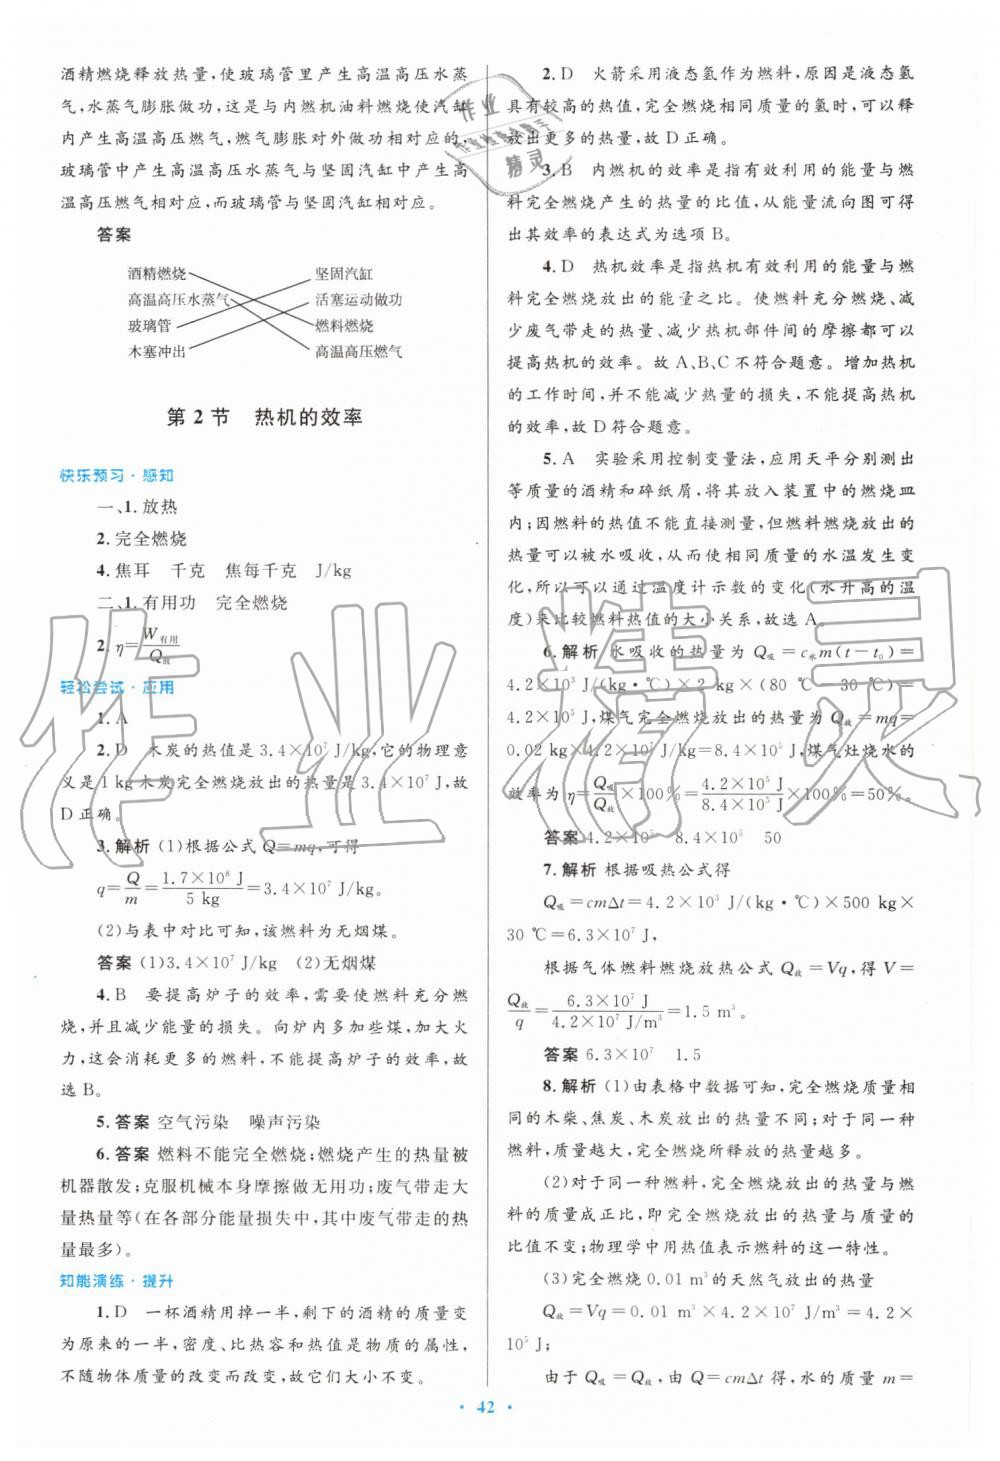 酒精燃烧释放热量,使玻璃管里产生高温高压水蒸
气,水蒸气膨胀做功,这是与内燃机油料燃烧使汽缸
内产生高温高压燃气,燃气膨胀对外做功相对应的,
玻璃管中产生高温高压水蒸气与坚固汽缸中产生高
温高压燃气相对应,而玻璃管与坚固汽缸相对应。
答案
酒精燃烧 坚固汽缸
高温高压水蒸气 活塞运动做功
玻璃管 燃料燃烧
木塞冲出 高温高压燃气
第2节 热机的效率
快乐预习·感知
一、1.放热
2.完全燃烧
4.焦耳 千克 焦每千克 J/kg
二、1.有用功 完全燃烧
2.η=W有用/Q放
轻松尝试·应用
1.A
2.D 木炭的热值是3.4×10⁷ J/kg,它的物理意
义是1 kg木炭完全燃烧放出的热量是3.4×10⁷ J,故
D正确。
3.解析 (1)根据公式Q=mq,可得
q=Q/m=1.7×10⁸ J/5 kg=3.4×10⁷ J/kg。
(2)与表中对比可知,该燃料为无烟煤。
答案 (1)3.4×10⁷ J/kg (2)无烟煤
4.B 要提高炉子的效率,需要使燃料充分燃
烧,并且减少能量的损失。向炉内多加些煤,加大火
力,这会消耗更多的燃料,不能提高炉子的效率,故
选B。
5.答案 空气污染 噪声污染
6.答案 燃料不能完全燃烧;燃烧产生的热量被
机器散发;克服机械本身摩擦做无用功;废气带走大
量热量等(在各部分能量损失中,其中废气带走的热
量最多)。
知能演练·提升
1.D 一杯酒精用掉一半,剩下的酒精的质量变
为原来的一半,密度、比热容和热值是物质的属性,
不随物体质量的改变而改变,故它们大小不变。
2.D 火箭采用液态氢作为燃料,原因是液态氢
具有较高的热值,完全燃烧相同质量的氢时,可以释
放出更多的热量,故D正确。
3.B 内燃机的效率是指有效利用的能量与燃
料完全燃烧产生的热量的比值,从能量流向图可得
出其效率的表达式为选项B。
4.D 热机效率是指热机有效利用的能量与燃
料完全燃烧放出的能量之比。使燃料充分燃烧、减
少废气带走的热量、减少热机部件间的摩擦都可以
提高热机的效率。故A、B、C不符合题意。增加热机
的工作时间,并不能减少热量的损失,不能提高热机
的效率,故D符合题意。
5.A 实验采用控制变量法,应用天平分别测出
等质量的酒精和碎纸屑,将其放入装置中的燃烧皿
内;因燃料的热值不能直接测量,但燃料燃烧放出的
热量可以被水吸收,从而使相同质量的水温发生变
化,所以可以通过温度计示数的变化(水升高的温
度)来比较燃料热值的大小关系,故选A。
6.解析 水吸收的热量为Q吸=c水m(t-t₀)=
4.2×10³ J/(kg·℃)×2 kg×(80 ℃-30 ℃)=
4.2×10⁵ J,煤气完全燃烧放出的热量为Q放=mq=
0.02 kg×4.2×10⁷ J/kg=8.4×10⁵ J,煤气灶烧水的
效率为η=Q吸/Q放×100%=4.2×10⁵ J/8.4×10⁵ J×100%=50%。
答案 4.2×10⁵ 8.4×10⁵ 50
7.解析 根据吸热公式得
Q吸=cmΔt=4.2×10³ J/(kg·℃)×500 kg×
30 ℃=6.3×10⁷ J,
根据气体燃料燃烧放热公式Q放=Vq,得V=
Q放/q=6.3×10⁷ J/4.2×10⁷ J/m³=1.5 m³。
答案 6.3×10⁷ 1.5
8.解析 (1)由表格中数据可知,完全燃烧质量相
同的木柴、焦炭、木炭放出的热量不同;对于同一种
燃料,质量越大,完全燃烧所释放的热量越多。
(2)对于同一种燃料,完全燃烧放出的热量与燃
料的质量成正比,即完全燃烧放出的热量与质量的
比值不变;物理学中用热值表示燃料的这一特性。
(3)完全燃烧0.01 m³的天然气放出的热量
Q放=Vq=0.01 m³×4.2×10⁷ J/m³=4.2×
10⁵ J;
由于Q吸=Q放,由Q=cmΔt得,水的质量m=
·42·
作业精灵
作业
精灵